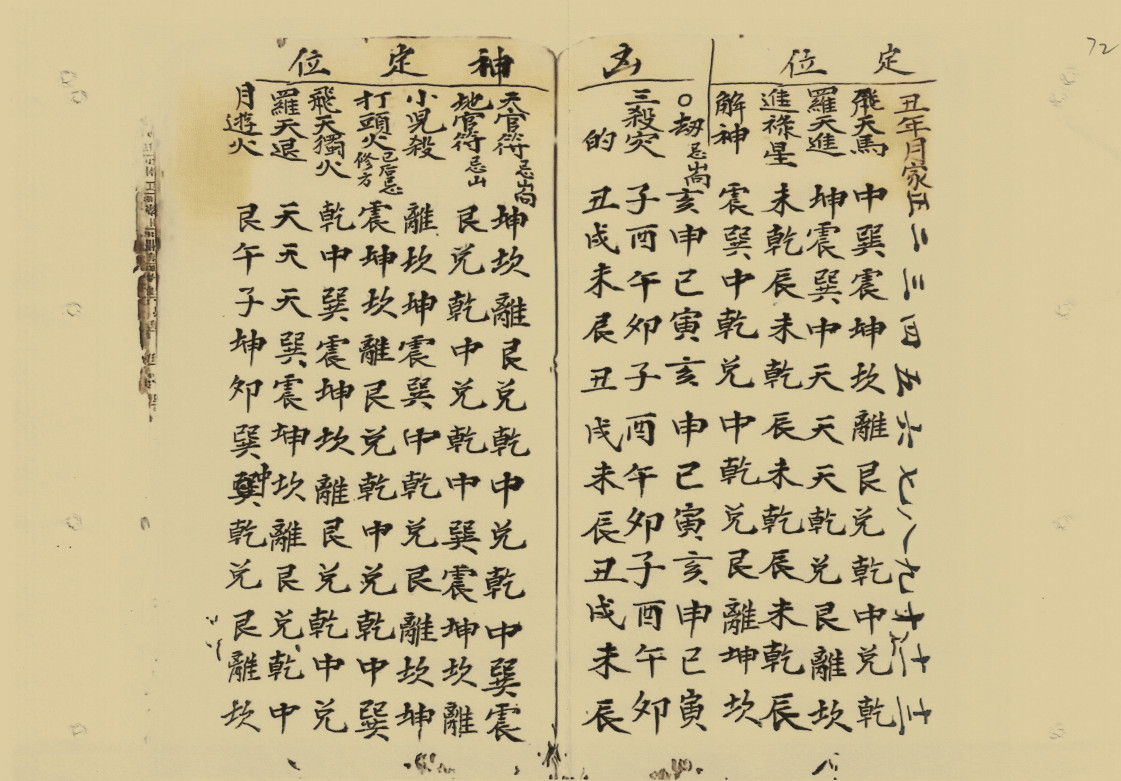 72
定位
丑年月家正二三四五六七八九十十一十二
飛天馬中巽震坤坎離艮兌乾中兌乾
羅天進坤震巽中天天天乾兌艮離坎
進祿星未乾辰未乾辰未乾辰未乾辰
解神震巽中乾兌中乾兌艮離坤坎
凶神定位
○劫忌亥申巳寅亥申巳寅亥申巳寅
三殺災子酉午卯子酉午卯子酉午卯
的丑戌未辰丑戌未辰丑戌未辰
天官符忌坤坎離艮兌乾中兌乾中巽震
地官符忌山艮兌乾中兌乾中巽震坤坎離
小兒殺離坎坤震巽中乾兌艮離坎坤
打頭火忌修方震坤坎離艮兌乾中兌乾中巽
飛天獨火乾中巽震坤坎離艮兌乾中兌
羅天退天天天巽震坤坎離艮兌乾中
月遊火艮午子坤卯巽中乾兌艮離坎